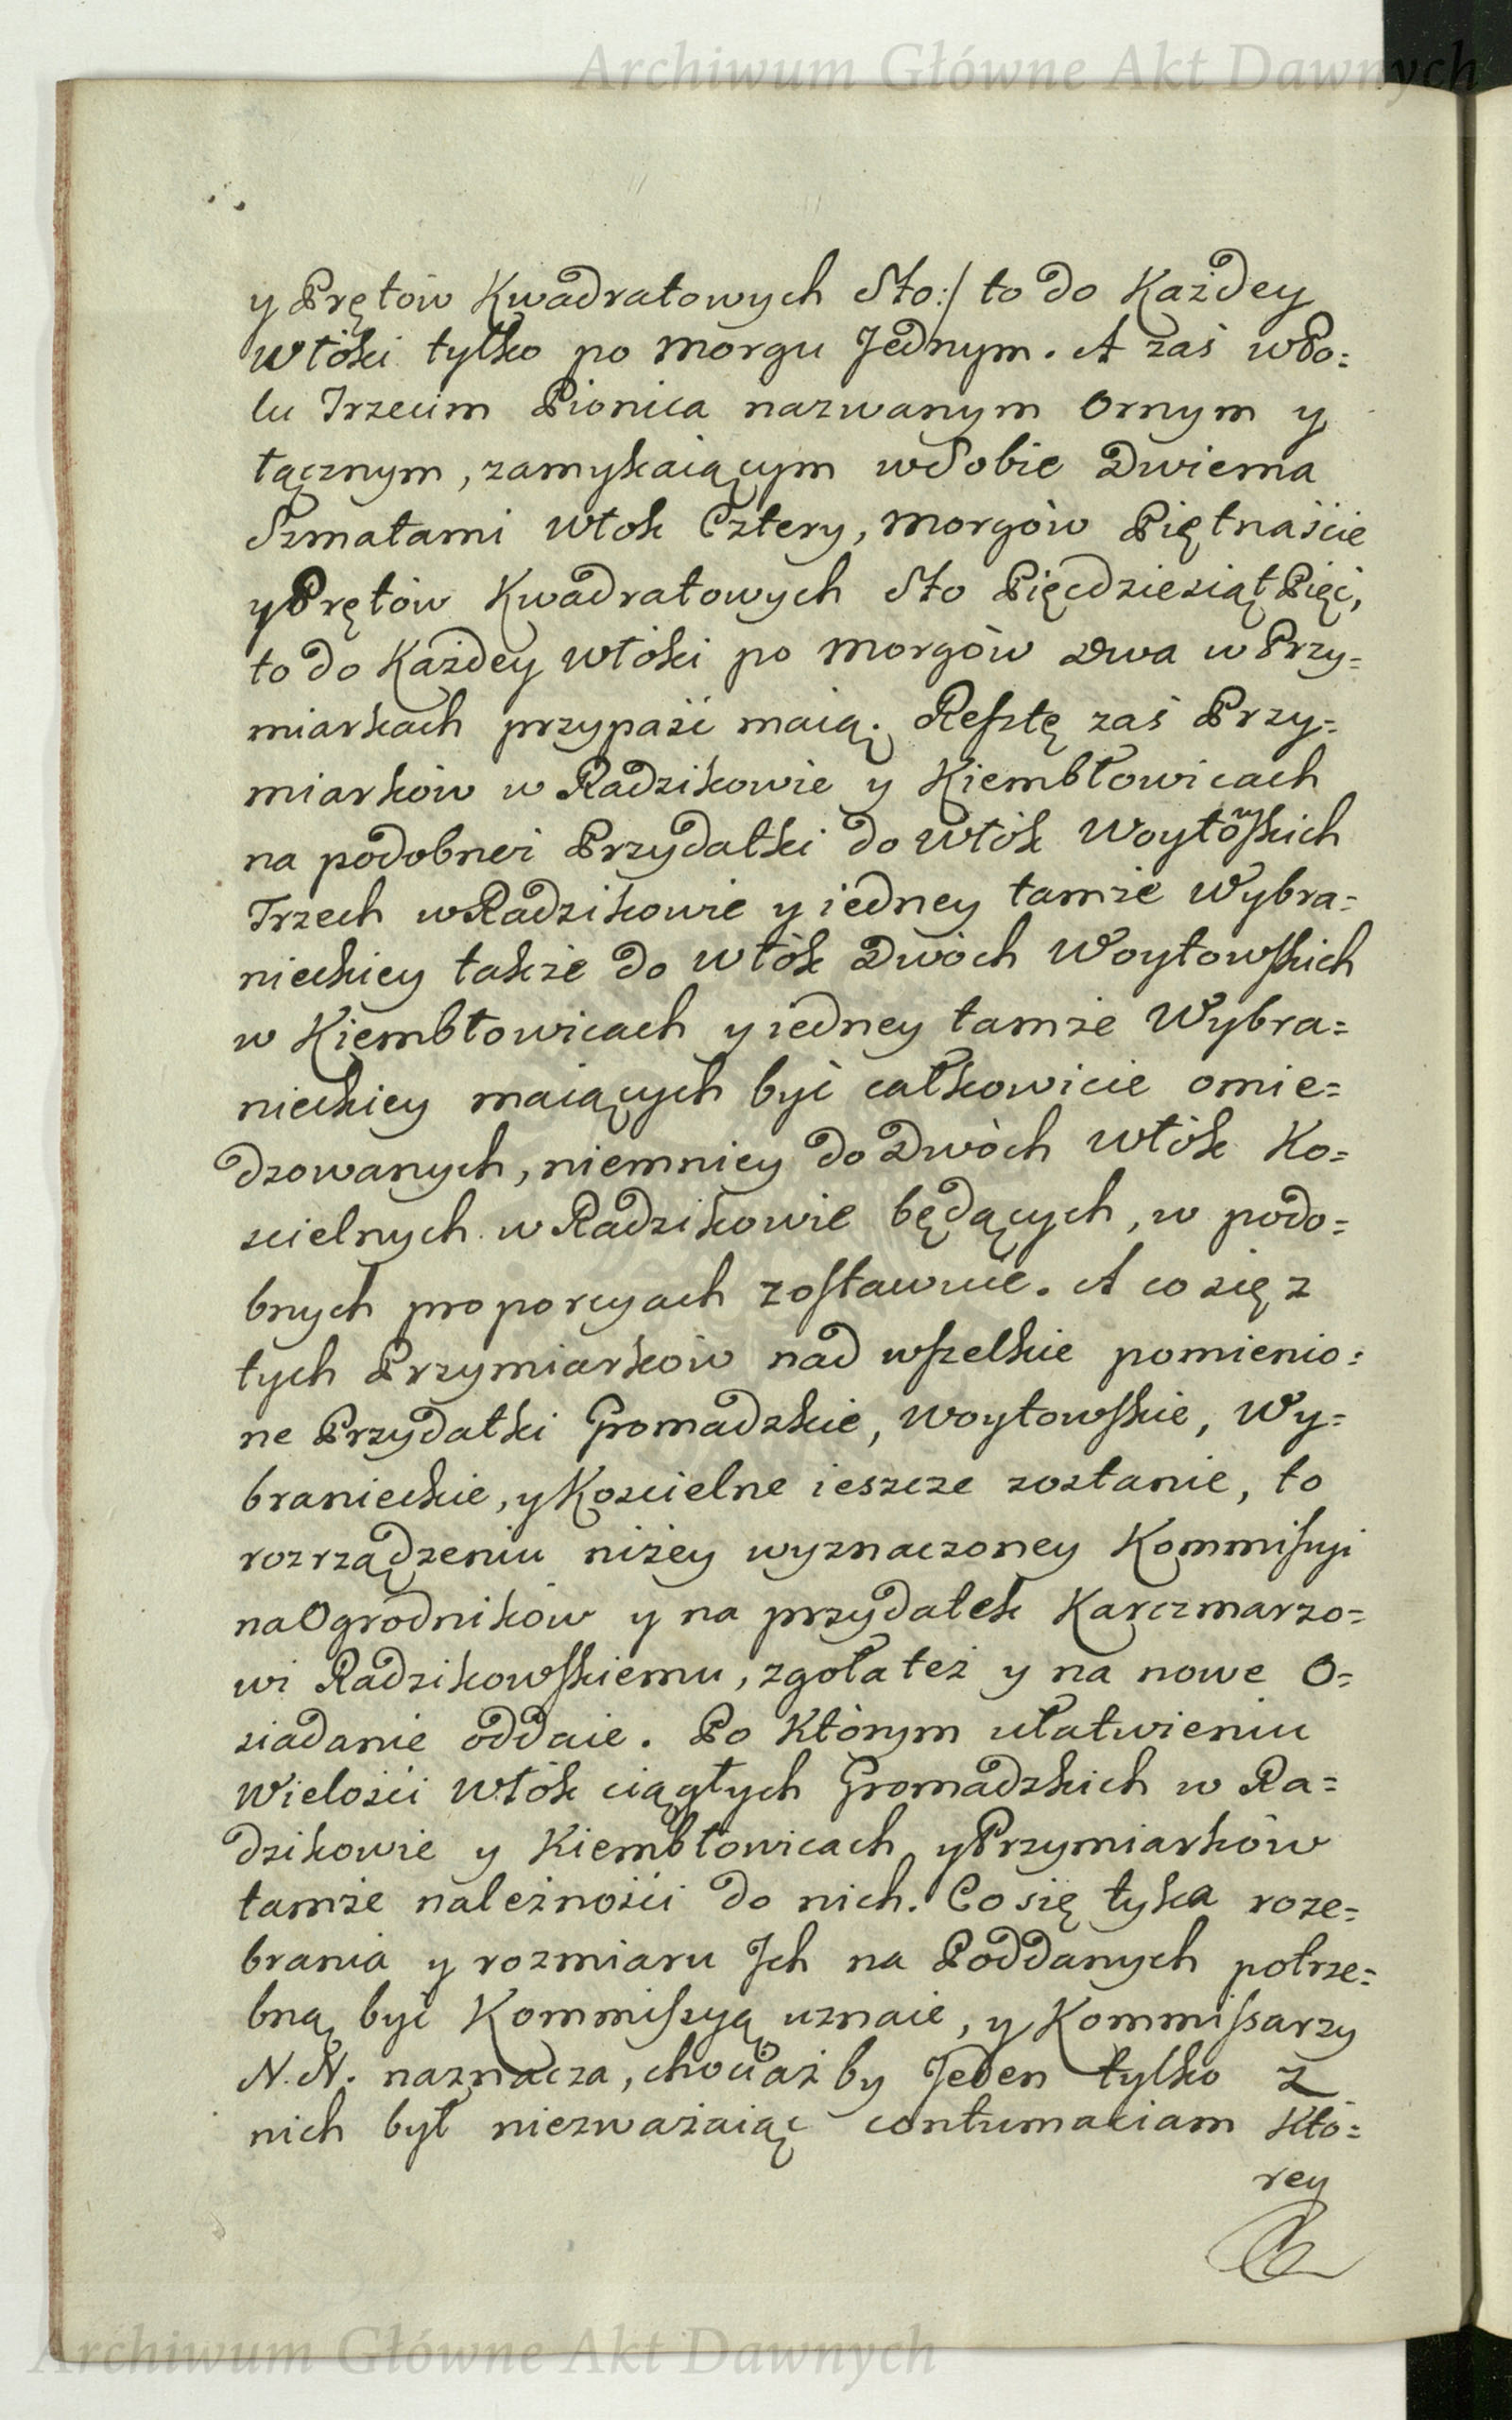 Archiwum Główne Akt Dawnych
y Prętów Kwadratowych Sto:/ to do Każdey
Włóki tylko po Morgu Jednym. A zaś w Po=
lu Trzecim Pionica nazwanym Ornym y
łącznym, zamykaiącym w Sobie Dwiema
Szmatami Włok Cztery, Morgów Piętnaście
y Prętów Kwadratowych Sto Pięcdziesiąt Pięć,
to do Każdey Włóki po Morgów Dwa w Przy=
miarkach przypaść maią. Resztę zaś Przy=
miarków w Radzikowie y Kiembłowicach
na podobneż Przydatki do Włók Woytowskich
Trzech w Radzikowie y iedney tamże Wybra=
nieckiey także do Włók Dwóch Woytowskich
w Kiembłowicach y iedney tamże Wybra=
nieckiey maiących być całkowicie omie=
dzowanych, niemniey do Dwóch Włók Ko=
scielnych w Radzikowie będących, w podo=
bnych proporcyach zostawuie. A co się z
tych Przymiarków nad wszelkie pomienio=
ne Przydatki Gromadzkie, Woytowskie, Wy=
branieckie, y Koscielne ieszcze zostanie, to
rozrządzeniu niżey wyznaczoney Kommissyi
na Ogrodników y na przydatek Karczmarzo=
wi Radzikowskiemu, zgoła też y na nowe O=
siadanie oddaie. Po Którym ułatwieniu
Wielości Włók ciągłych Gromadzkich w Ra=
dzikowie y Kiembłowicach y Przymiarków
tamże należności do nich. Co się tyka roze=
brania y rozmiaru Jch na Poddanych potrze=
bną być Kommissyą uznaie, y Kommissarzy
N. N. naznacza, chociaż by Jeden tylko z
nich był niezważaiąc contumaciam Któ=
rey
Archiwum Główne Akt Dawnych